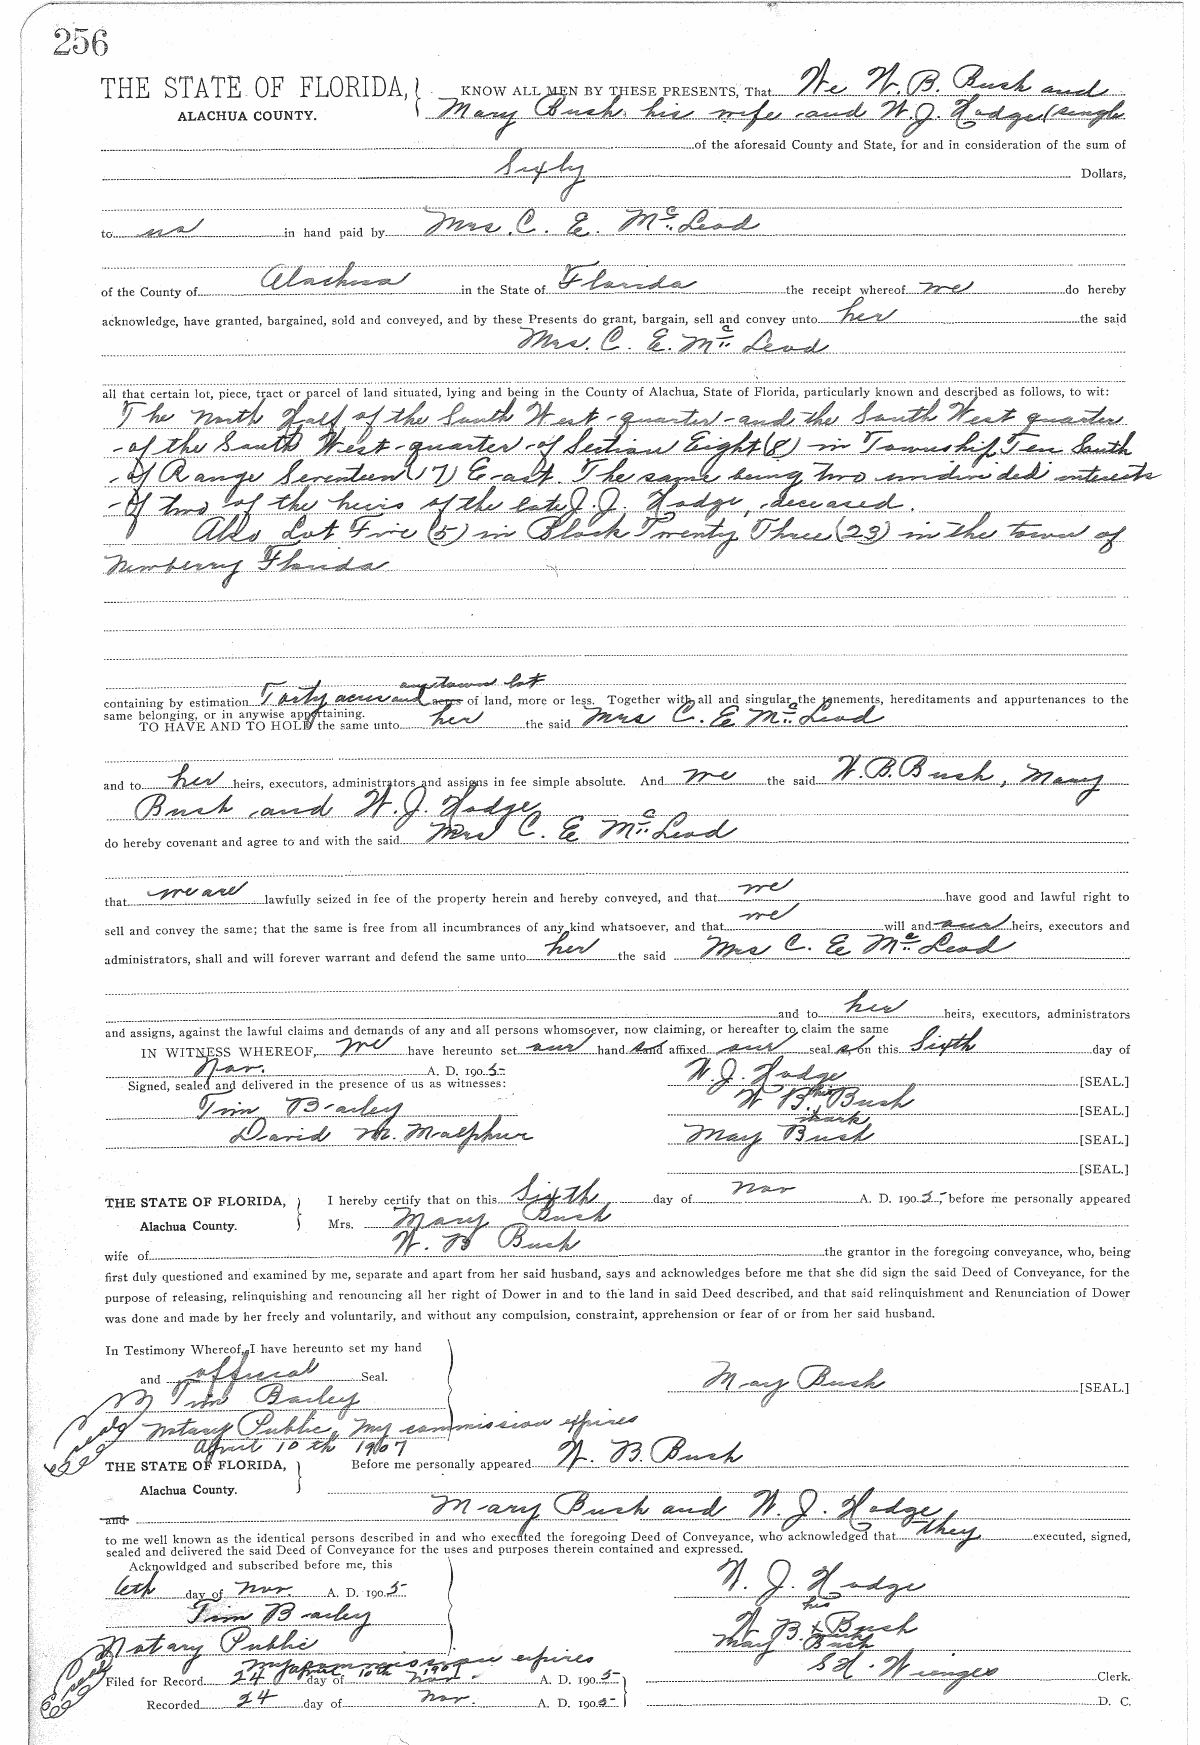 256
THE STATE OF FLORIDA, KNOW ALL MEN BY THESE PRESENTS, That We W. B. Bush and
ALACHUA COUNTY. Mary Bush his wife and W. J. Hodge (single
of the aforesaid County and State, for and in consideration of the sum of
Sixty Dollars,
to us in hand paid by Mrs. C. E. McLeod
of the County of Alachua in the State of Florida the receipt whereof we do hereby
acknowledge, have granted, bargained, sold and conveyed, and by these Presents do grant, bargain, sell and convey unto her the said
Mrs. C. E. McLeod
all that certain lot, piece, tract or parcel of land situated, lying and being in the County of Alachua, State of Florida, particularly known and described as follows, to wit:
The North Half of the South West quarter and the South West quarter
of the South West quarter of Section Eight (8) in Township Ten South
of Range Seventeen (17) East. The same being two undivided interests
of two of the heirs of the late J. J. Hodge, deceased.
Also Lot Five (5) in Block Twenty Three (23) in the town of
Newberry Florida
any town lot
containing by estimation Forty acres and acres of land, more or less. Together with all and singular the tenements, hereditaments and appurtenances to the
same belonging, or in anywise appertaining.
TO HAVE AND TO HOLD the same unto her the said Mrs C. E McLeod
and to her heirs, executors, administrators and assigns in fee simple absolute. And we the said W. B. Bush, Mary
Bush and W. J. Hodge
do hereby covenant and agree to and with the said Mrs C. E McLeod
that we are lawfully seized in fee of the property herein and hereby conveyed, and that we have good and lawful right to
sell and convey the same; that the same is free from all incumbrances of any kind whatsoever, and that we will and our heirs, executors and
administrators, shall and will forever warrant and defend the same unto her the said Mrs C. E McLeod
and to her heirs, executors, administrators
and assigns, against the lawful claims and demands of any and all persons whomsoever, now claiming, or hereafter to claim the same
IN WITNESS WHEREOF, we have hereunto set our hand s and affixed our seal s on this Sixth day of
Nov. A. D. 1905
Signed, sealed and delivered in the presence of us as witnesses: W. J. Hodge [SEAL.]
Tim Bailey W B. his Bush [SEAL.]
mark
David M. Malphur May Bush [SEAL.]
[SEAL.]
THE STATE OF FLORIDA, I hereby certify that on this Sixth day of Nov A. D. 1905, before me personally appeared
Alachua County. Mrs. Mary Bush
wife of W. B Bush the grantor in the foregoing conveyance, who, being
first duly questioned and examined by me, separate and apart from her said husband, says and acknowledges before me that she did sign the said Deed of Conveyance, for the
purpose of releasing, relinquishing and renouncing all her right of Dower in and to the land in said Deed described, and that said relinquishment and Renunciation of Dower
was done and made by her freely and voluntarily, and without any compulsion, constraint, apprehension or fear of or from her said husband.
In Testimony Whereof, I have hereunto set my hand
and official Seal. May Bush [SEAL.]
Tim Bailey
Notary Public, My commission expires
April 10th 1907
THE STATE OF FLORIDA, Before me personally appeared W. B. Bush
Alachua County.
and Mary Bush and W. J. Hodge
to me well known as the identical persons described in and who executed the foregoing Deed of Conveyance, who acknowledged that they executed, signed,
sealed and delivered the said Deed of Conveyance for the uses and purposes therein contained and expressed.
Acknowldged and subscribed before me, this
6th day of Nov. A. D. 1905 W. J. Hodge
Tim Bailey his
W B. x Bush
Notary Public May Bush
My commission expires
10th 1907
Filed for Record 24 day of Nov. A. D. 1905 S. H. Wienges Clerk.
Recorded 24 day of Nov. A. D. 1905 D. C.